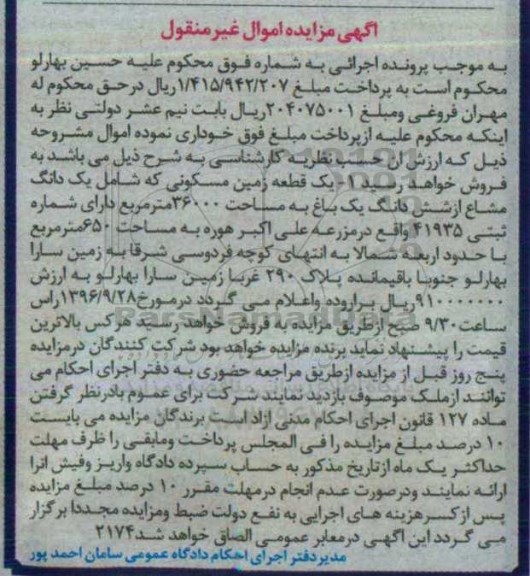 اگهی مزایده اموال غیر منقول
به موجب پرونده اجرائی به شماره فوق محکوم علیه حسین بهارلو
محکوم است به پرداخت مبلغ ۱/۴۱۵/۹۴۲/۲۰۷ریال درحق محکوم له
مهران فروغی ومبلغ ۲۰۴۰۷۵۰۰۱ریال بابت نیم عشر دولتی نظر به
اینکه محکوم علیه ازپرداخت مبلغ فوق خودداری نموده اموال مشروحه
ذیل که ارزش ان حسب نظریه کارشناسی به شرح ذیل می باشد به
فروش خواهد رسید ۱- یک قطعه زمین مسکونی که شامل یک دانگ
مشاع ازشش دانگ یک باغ به مساحت ۳۶۰۰۰مترمربع دارای شماره
ثبتی ۴۱۹۳۵ واقع درمزرعه علی اکبر هوره به مساحت ۶۵۰مترمربع
با حدود اربعه شمالا به انتهای کوچه فردوسی شرقا به زمین سارا
بهارلو جنوبا باقیمانده پلاک ۲۹۰ غربا زمین سارا بهارلو به ارزش
۹۱۰۰۰۰۰۰۰ریال براروده واعلام می گردد درمورخ۱۳۹۶/۹/۲۸راس
ساعت۹/۳۰ صبح ازطریق مزایده به فروش خواهد رسید هرکس بالاترین
قیمت را پیشنهاد نماید برنده مزایده خواهد بود شرکت کنندگان درمزایده
پنج روز قبل از مزایده ازطریق مراجعه حضوری به دفتر اجرای احکام می
توانند ازملک موصوف بازدید نمایند شرکت برای عموم بادرنظر گرفتن
ماده ۱۲۷ قانون اجرای احکام مدنی ازاد است برندگان مزایده می بایست
۱۰ درصد مبلغ مزایده را فی المجلس پرداخت ومابقی را ظرف مهلت
حداکثر یک ماه ازتاریخ مذکور به حساب سپرده دادگاه واریز وفیش انرا
ارائه نمایند ودرصورت عدم انجام درمهلت مقرر ۱۰ درصد مبلغ مزایده
پس ازکسرهزینه های اجرایی به نفع دولت ضبط ومزایده مجددا برگزار
می گردد این اگهی درمعابر عمومی الصاق خواهد شد۲۱۷۴
مدیردفتر اجرای احکام دادگاه عمومی سامان احمد پور